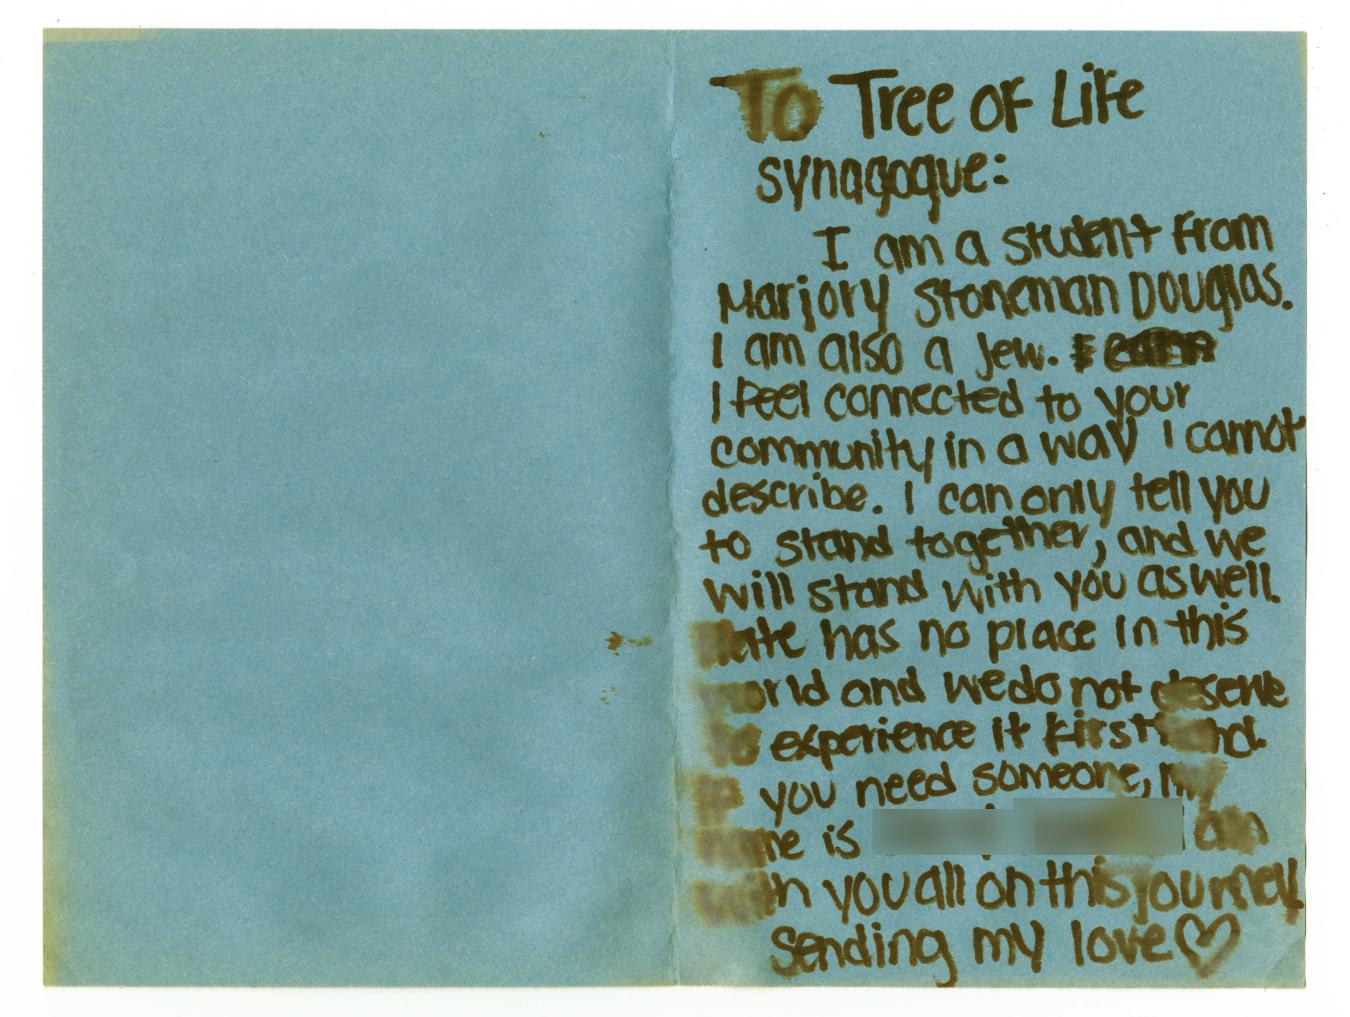 To Tree of Life
synagogue:
I am a student from
Marjory Stoneman Douglas.
I am also a Jew. I
I feel connected to your
community in a way I cannot
describe. I can only tell you
to stand together, and we
will stand with you as well.
Hate has no place in this
world and we do not deserve
to experience it firsthand.
If you need someone, my
name is am
with you all on this journey.
Sending my love ♡